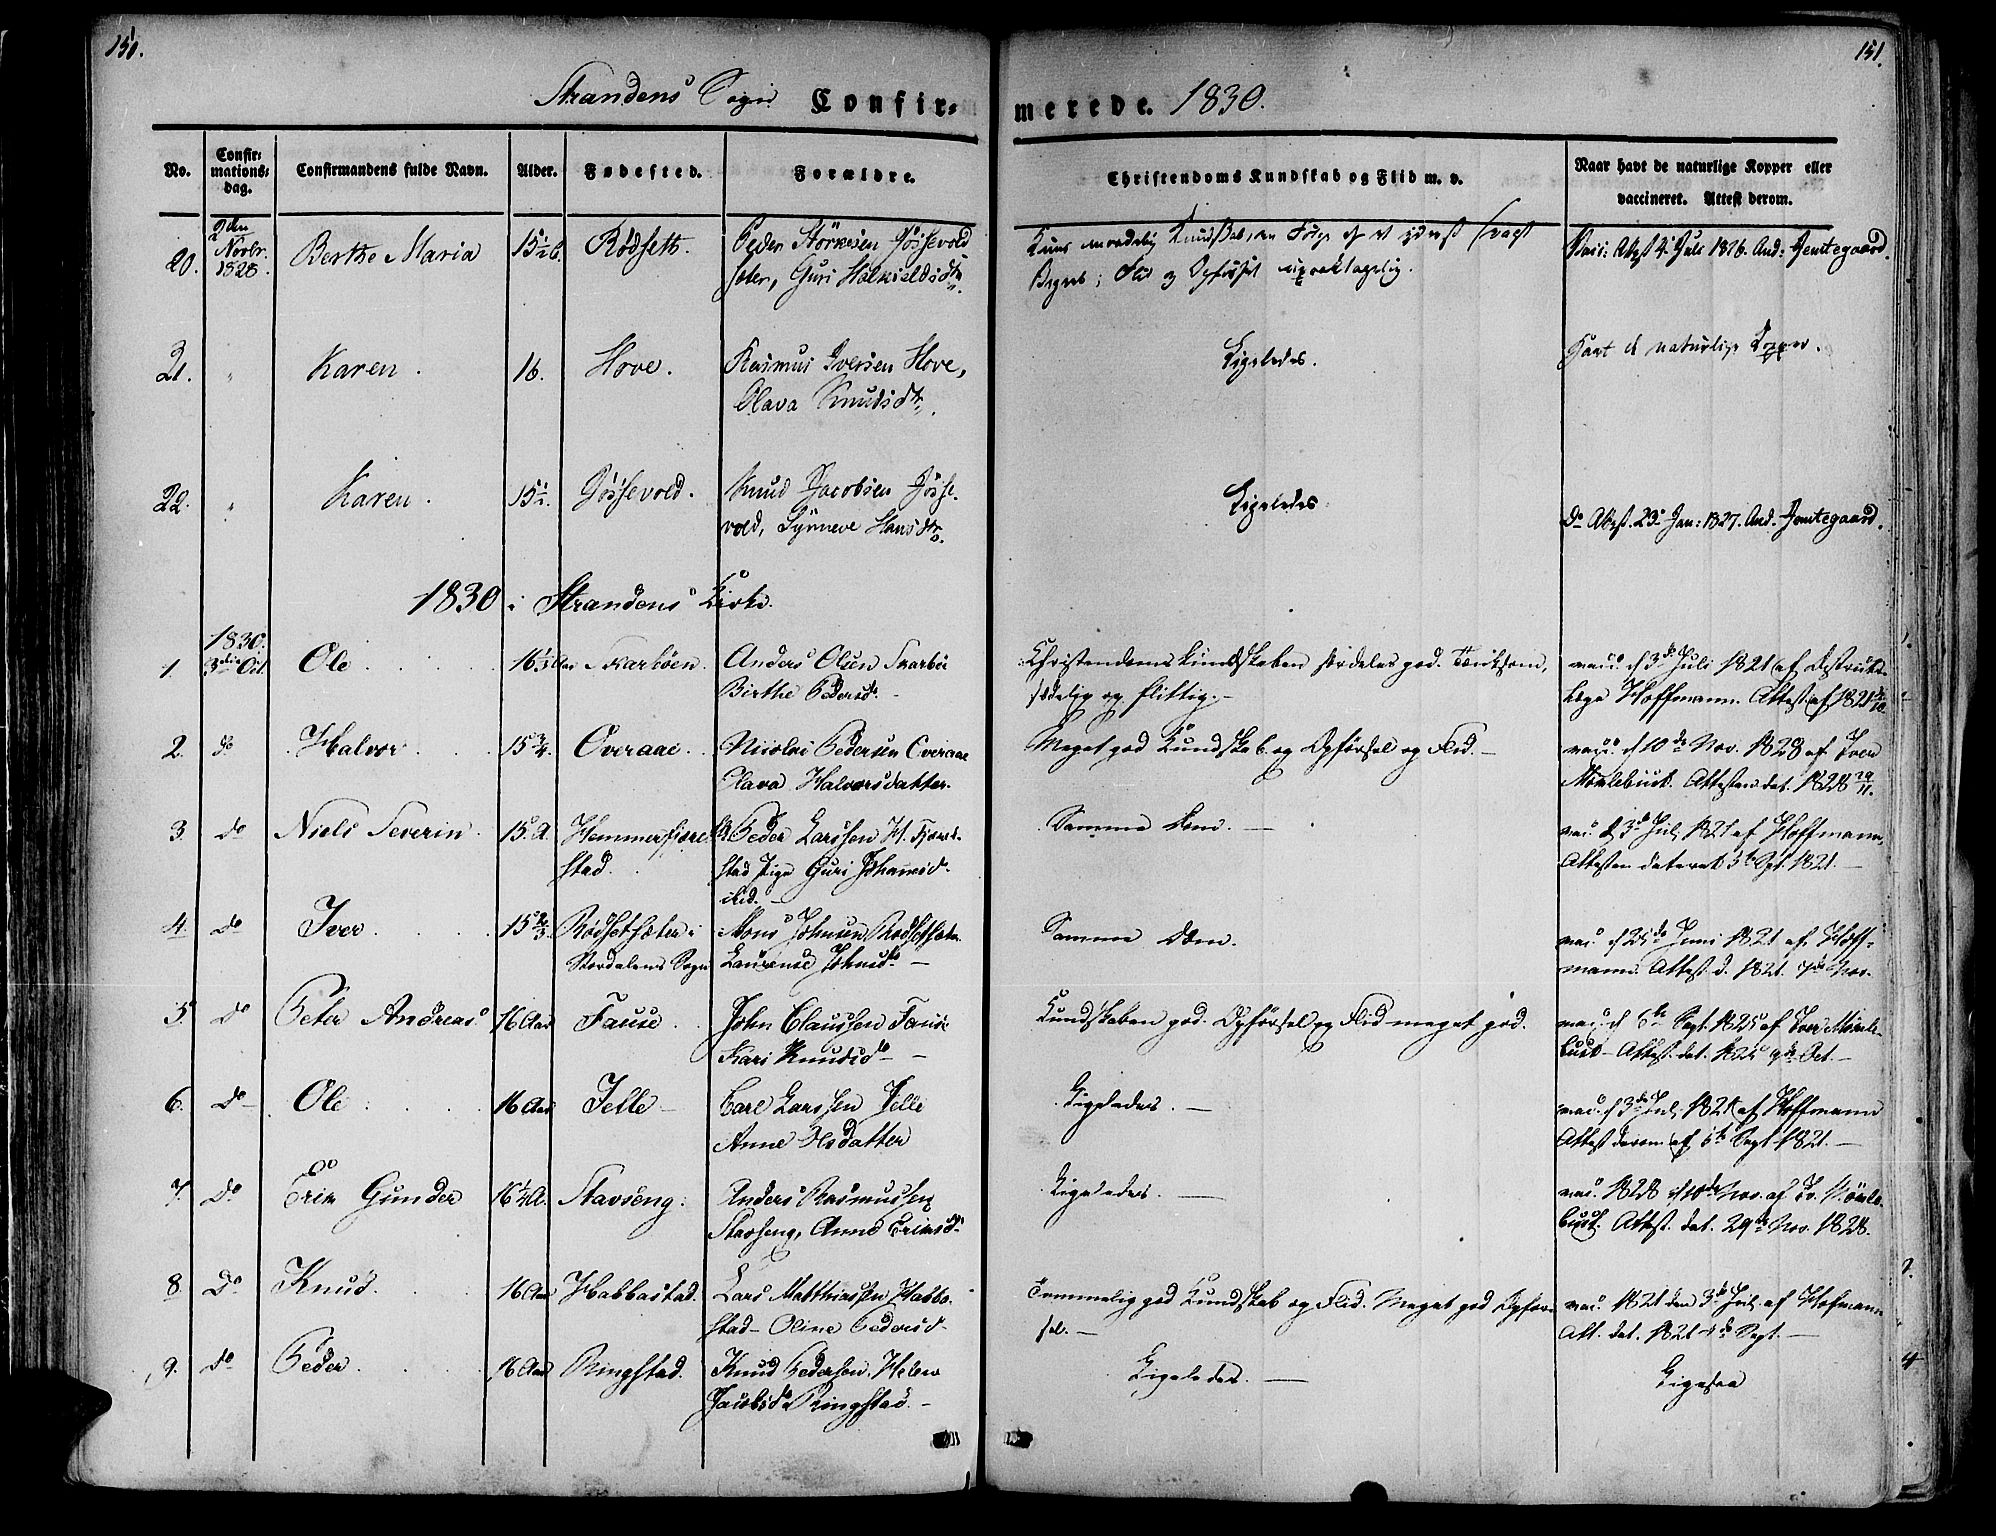 150.
151.
Strandens Sogn Confir-
merede. 1830.
No.
Confir-
mations-
dag.
Confirmandens fulde Navn.
Alder.
Fødested.
Forældre.
Christendoms Kundskab og Flid m. v.
Naar havt de naturlige Kopper eller
vaccineret. Attest derom.
20.
2den
Novbr.
1828.
Berthe Maria
15½
Rødseth.
Peder Störkesen Jössevold
sæter, Guri
Kundskab
Begreb; Flid og Opførsel upaaklagelig.
Attest Juli 1826. And: Jemtegaard.
21.
"
Karen.
16.
Hove.
Rasmus Iversen Hove,
Olava Knudsdtr.
Ligeledes.
Havt de naturlige Kopper.
22.
"
Karen.
15½.
Jössevold.
Knud Jacobsen Jösse-
vold, Synneve Hansdtr.
Ligeledes
Do Attest. 23de Jan: 1827. And. Jemtegaard.
1830 i Strandens Kirke.
1830.
1.
3die Oct.
Ole
16⅓ Aar
Skarböen.
Anders Olsen Skarbö
Birthe Pedersd.
Christendomskundskaben særdeles god. Tænksom,
sædelig og flittig.
vacc. d 3de Juli 1821 af Distrikts-
læge Hoffmann. Attest af 1821
2.
do
Halvor
15¾.
Overaae.
Nicolai Pedersen Overaae
Olava Halvorsdatter.
Meget god Kundskab og Opførsel og Flid.
vacc. d 10de Nov. 1828 af Iver
Attesten dat. 1828 29/11.
3.
do
Niels Severin.
15. A
Hemmerfjære-
stad.
Peder Larssen H. Fjære-
stad Pige Guri Johannesd.
ibid.
Samme Dom.
vac. d 3de Juli 1821 af Hoffmann,
Attesten dateret 5te Spt. 1821.
4.
do
Iver
15⅔
Rødsetsæter i
Stordalens Sogn
Mons Johnsen Rødsetsætr.
Laurense Johnsd.
Samme Dom.
vac. d 25de Juni 1821 af Hoff-
mann. Attest d. 1821. 7de Nov.
5.
do
Peter Andreas
16 Aar
Fause
John Claussen Fause
Kari Knudsd.
Kundskaben god. Opførsel og Flid meget god.
vac. d 6te Sept. 1825 af Iver
Attest. dat. 1825 9de Oct.
6.
do
Ole
16 Aar
Jelle
Carl Larssen Jelle
Anne Olsdatter
Ligeledes.
vac. d 3de Juli 1821 af Hoffmann
Attest derom af 5te Sept. 1821.
7.
do
Erik Gunder
16¼ A.
Stavseng.
Anders Rasmussen
Stavseng, Anne Eriksd.
Ligeledes.
vac. 1828 d 10de Nov. af Iv.
Attest. dat. 29de Nov. 1828.
8.
do
Knud.
16 Aar
Habbastad.
Lars Matthiassen Habba-
stad Oline Pedersd.
Temmelig god Kundskab og Flid. Meget god Opfør-
sel.
vac. 1821 den 3de Juli af Hofmann
Att. dat. 1821 Sept.
9.
do
Peder
16 Aar
Ringstad.
Knud Pedersen. Helene
Jacobsd. Ringstad.
Ligeledes.
Ligesaa